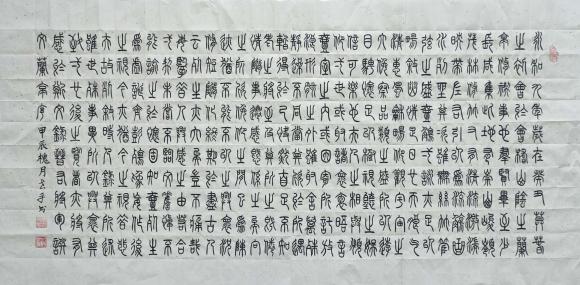 永和九年歲在癸丑暮春
之初會于會稽山陰之蘭
亭修禊事也群賢畢至少
長咸集此地有崇山峻領
茂林修竹又有清流激湍
映帶左右引以為流觴曲
水列坐其次雖無絲竹管
弦之盛一觴一詠亦足以
暢敘幽情是日也天朗氣
清惠風和暢仰觀宇宙之
大俯察品類之盛所以遊
目騁懷足以極視聽之娛
信可樂也夫人之相與俯
仰一世或取諸懷抱悟言
一室之內或因寄所託放
浪形骸之外雖趣舍萬殊
靜躁不同當其欣於所遇
暫得於己快然自足不知
老之將至及其所之既倦
情隨事遷感慨係之矣向
之所欣俛仰之間已為陳
迹猶不能不以之興懷況
脩短隨化終期於盡古人
云死生亦大矣豈不痛哉
每覽昔人興感之由若合
一契未嘗不臨文嗟悼不
能喻之於懷固知一死生
為虛誕齊彭殤為妄作後
之視今亦由今之視昔悲
夫故列敘時人錄其所述
雖世殊事異所以興懷其
致一也後之覽者亦將有
感於斯
文蘭亭序甲辰槐月